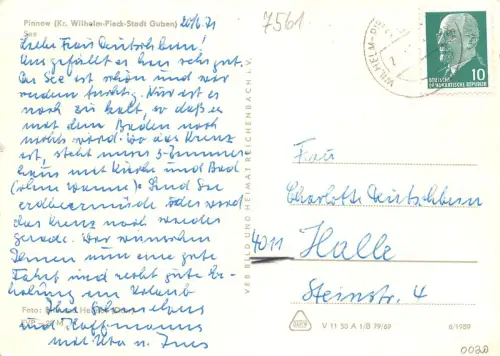 Pinnow (Kr. Wilhelm-Pieck-Stadt Guben) 20/6.71
See
7561
Liebe Frau Deutschbein!
Uns gefällt es hier sehr gut.
Der See ist schön und wir
rudern tüchtig. Nur ist es
noch zu kalt, so daß es
mit dem Baden noch
nichts wird. Wo das Kreuz
ist, steht unser 3-Zimmer-
haus mit Küche und Bad
(ohne Wanne). Sind Sie
erdbeermüde oder wird
das Kreuz noch wieder
gerade. Wir wünschen
Ihnen eine gute
Fahrt und recht gute Er-
holung im Urlaub
Ihre
und Hoffmanns
und Uta u. Ines
Foto:
VEB BILD UND HEIMAT REICHENBACH I. V.
WILHELM-PIE
DEUTSCHE
DEMOKRATISCHE REPUBLIK
10
Frau
Charlotte Deutschbein
4011 Halle
Steinstr. 4
V 11 50 A 1/B 79/69
6/1989
0020